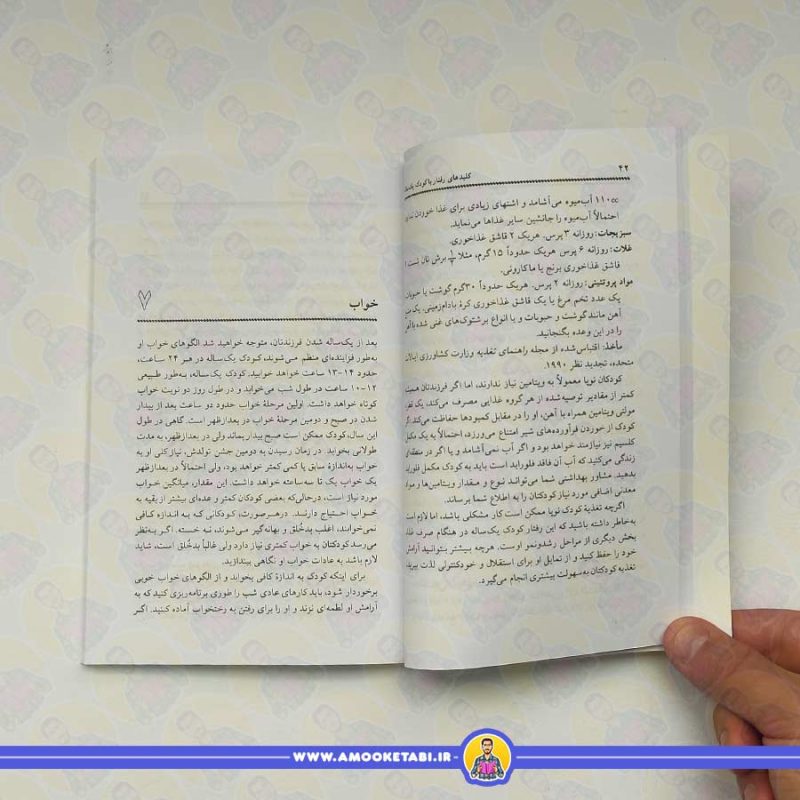 ۴۲
کلیدهای رفتار با کودک یک‌ساله
۱۱۰cc آب‌میوه می‌آشامد و اشتهای زیادی برای غذا خوردن
احتمالاً آب‌میوه را جانشین سایر غذاها می‌نماید.
سبزیجات: روزانه ۳ پرس. هریک ۲ قاشق غذاخوری.
غلات: روزانه ۶ پرس. هریک حدوداً ۱۵گرم، مثلا ½ برش نان تست
قاشق غذاخوری برنج یا ماکارونی.
مواد پروتئینی: روزانه ۲ پرس. هریک حدوداً ۳۰گرم گوشت یا حبوبات
یک عدد تخم مرغ یا یک قاشق غذاخوری کرهٔ بادام‌زمینی. یک
آهن مانندگوشت و حبوبات و یا انواع برشتوک‌های غنی شده با
را در این وعده بگنجانید.
مأخذ: اقتباس‌شده از مجله راهنمای تغذیه وزارت کشاورزی ایالات
متحده، تجدید نظر ۱۹۹۰.
کودکان نوپا معمولاً به ویتامین نیاز ندارند، اما اگر فرزندتان
کمتر از مقادیر توصیه‌شده از هرگروه غذایی مصرف می‌کند، یک
مولتی ویتامین همراه با آهن، او را در مقابل کمبودها حفاظت می‌کند. اگر
کودک از خوردن فرآورده‌های شیر امتناع می‌ورزد، احتمالاً به یک مکمل
کلسیم نیز نیازمند خواهد بود و اگر آب نمی‌آشامد و یا اگر در
زندگی می‌کنید که آب آن فاقد فلوراید است باید به کودک مکمل فلوراید
بدهید. مشاور بهداشتی شما می‌تواند نوع و مقدار ویتامین‌ها و مواد
معدنی اضافی مورد نیاز کودکتان را به اطلاع شما برساند.
اگرچه تغذیهٔ کودک نوپا ممکن است کار مشکلی باشد، اما لازم است
به‌خاطر داشته باشید که این رفتار کودک یک‌ساله در هنگام صرف غذا
بخش دیگری از مراحل رشدونمو است. هرچه بیشتر بتوانید آرامش
خود را حفظ کنید و از تمایل او برای استقلال و خودکنترلی لذت ببرید،
تغذیه کودکتان به‌سهولت بیشتری انجام می‌گیرد.
۷
خواب
بعد از یک‌ساله شدن فرزندتان، متوجه خواهید شد الگوهای خواب او
به‌طور فزاینده‌ای منظم می‌شوند، کودک یک‌ساله در هر ۲۴ ساعت،
حدود ۱۴-۱۳ ساعت خواهد خوابید. کودک یک‌ساله، به‌طور طبیعی
۱۲-۱۰ ساعت در طول شب می‌خوابد و در طول روز دو نوبت خواب
کوتاه خواهد داشت. اولین مرحلهٔ خواب حدود دو ساعت بعد از بیدار
شدن در صبح و دومین مرحلهٔ خواب در بعدازظهر است. گاهی در طول
این سال، کودک ممکن است صبح بیدار بماند ولی در بعدازظهر، به مدت
طولانی بخوابد. در زمان رسیدن به دومین جشن تولدش، نیاز کلی او به
خواب به‌اندازهٔ سابق یا کمی کمتر خواهد بود، ولی احتمالاً در بعدازظهر
یک خواب یک تا سه‌ساعته خواهد داشت. این مقدار، میانگین خواب
مورد نیاز است، درحالی‌که بعضی کودکان کمتر و عده‌ای بیشتر از بقیه به
خواب احتیاج دارند. درهرصورت، کودکانی که به اندازه کافی
نمی‌خوابند، اغلب بدخُلق و بهانه‌گیر می‌شوند، نه خسته. اگر به‌نظر
می‌رسد کودکتان به خواب کمتری نیاز دارد ولی غالباً بدخُلق است، شاید
لازم باشد به عادات خواب او نگاهی بیندازید.
برای اینکه کودک به اندازهٔ کافی بخوابد و از الگوهای خواب خوبی
برخوردار شود، باید کارهای عادی شب را طوری برنامه‌ریزی کنید که به
آرامش او لطمه‌ای نزند و او را برای رفتن به رختخواب آماده کنید. اگر
WWW.AMOOKETABI.IR